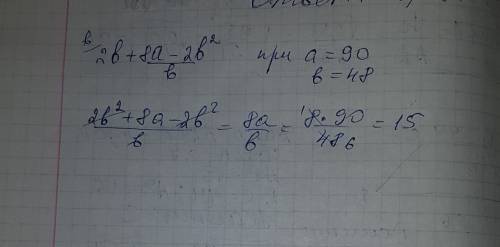 b/ 2b + (8a - 2b²)/b при a = 90
b = 48
(2b² + 8a - 2b²)/b = 8a/b = ¹8 · 90/48₆ = 15